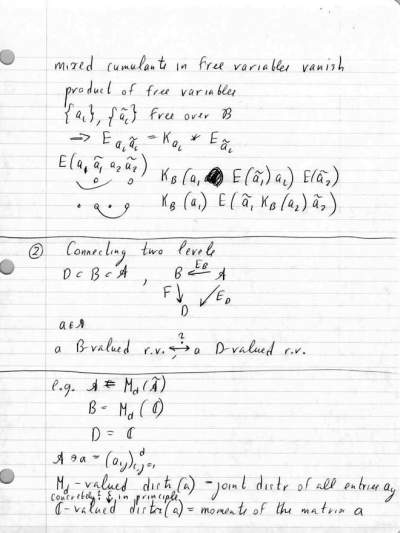 mixed cumulants in free variables vanish
product of free variables
{a_i}, {ã_i} free over B
→ E_{a_i ã_i} = K_{a_i} * E_{ã_i}
E(a_1 ã_1 a_2 ã_2)
K_B(a_1 E(ã_1) a_2) E(ã_2)
K_B(a_1) E(ã_1 K_B(a_2) ã_2)
② Connecting two levels
D ⊂ B ⊂ A , B ←E_B A
F ↓ ↙ E_D
D
a ∈ A
a B-valued r.v. ↔? a D-valued r.v.
e.g. A = M_d(Ã)
B = M_d(ℂ)
D = ℂ
A ∋ a = (a_ij)_{i,j=1}^d
M_d-valued distr(a) = joint distr of all entries a_ij
concretely? ↓ in principle
ℂ-valued distr(a) = moments of the matrix a